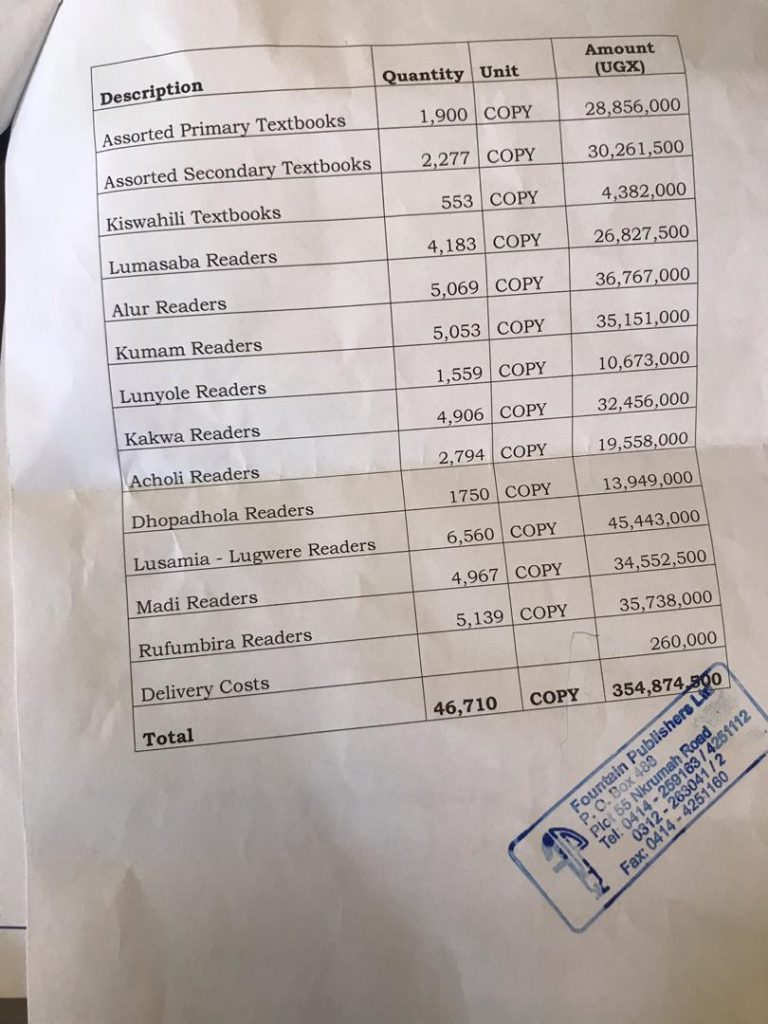 Description Quantity Unit Amount (UGX)
Assorted Primary Textbooks 1,900 COPY 28,856,000
Assorted Secondary Textbooks 2,277 COPY 30,261,500
Kiswahili Textbooks 553 COPY 4,382,000
Lumasaba Readers 4,183 COPY 26,827,500
Alur Readers 5,069 COPY 36,767,000
Kumam Readers 5,053 COPY 35,151,000
Lunyole Readers 1,559 COPY 10,673,000
Kakwa Readers 4,906 COPY 32,456,000
Acholi Readers 2,794 COPY 19,558,000
Dhopadhola Readers 1750 COPY 13,949,000
Lusamia - Lugwere Readers 6,560 COPY 45,443,000
Madi Readers 4,967 COPY 34,552,500
Rufumbira Readers 5,139 COPY 35,738,000
Delivery Costs 260,000
Total 46,710 COPY 354,874,500
Fountain Publishers
P. O. Box 488
Plot 55 Nkrumah Road
Tel: 0414 - 259163 / 4251112
0312 - 263041 / 2
Fax: 0414 - 4251160